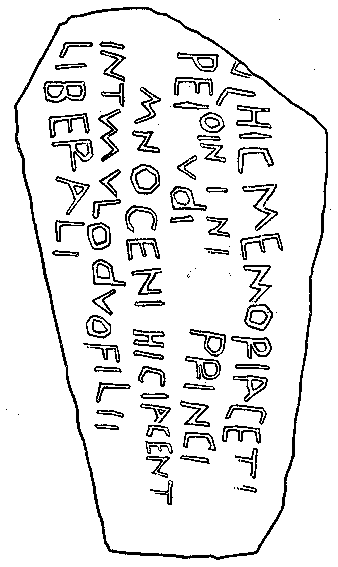 HIC MEMORIACETI
OIN INI PPINCI
PEI VdI
MNOCENI HICIACENT
INTMVLO dVO FILII
LIBEPALI